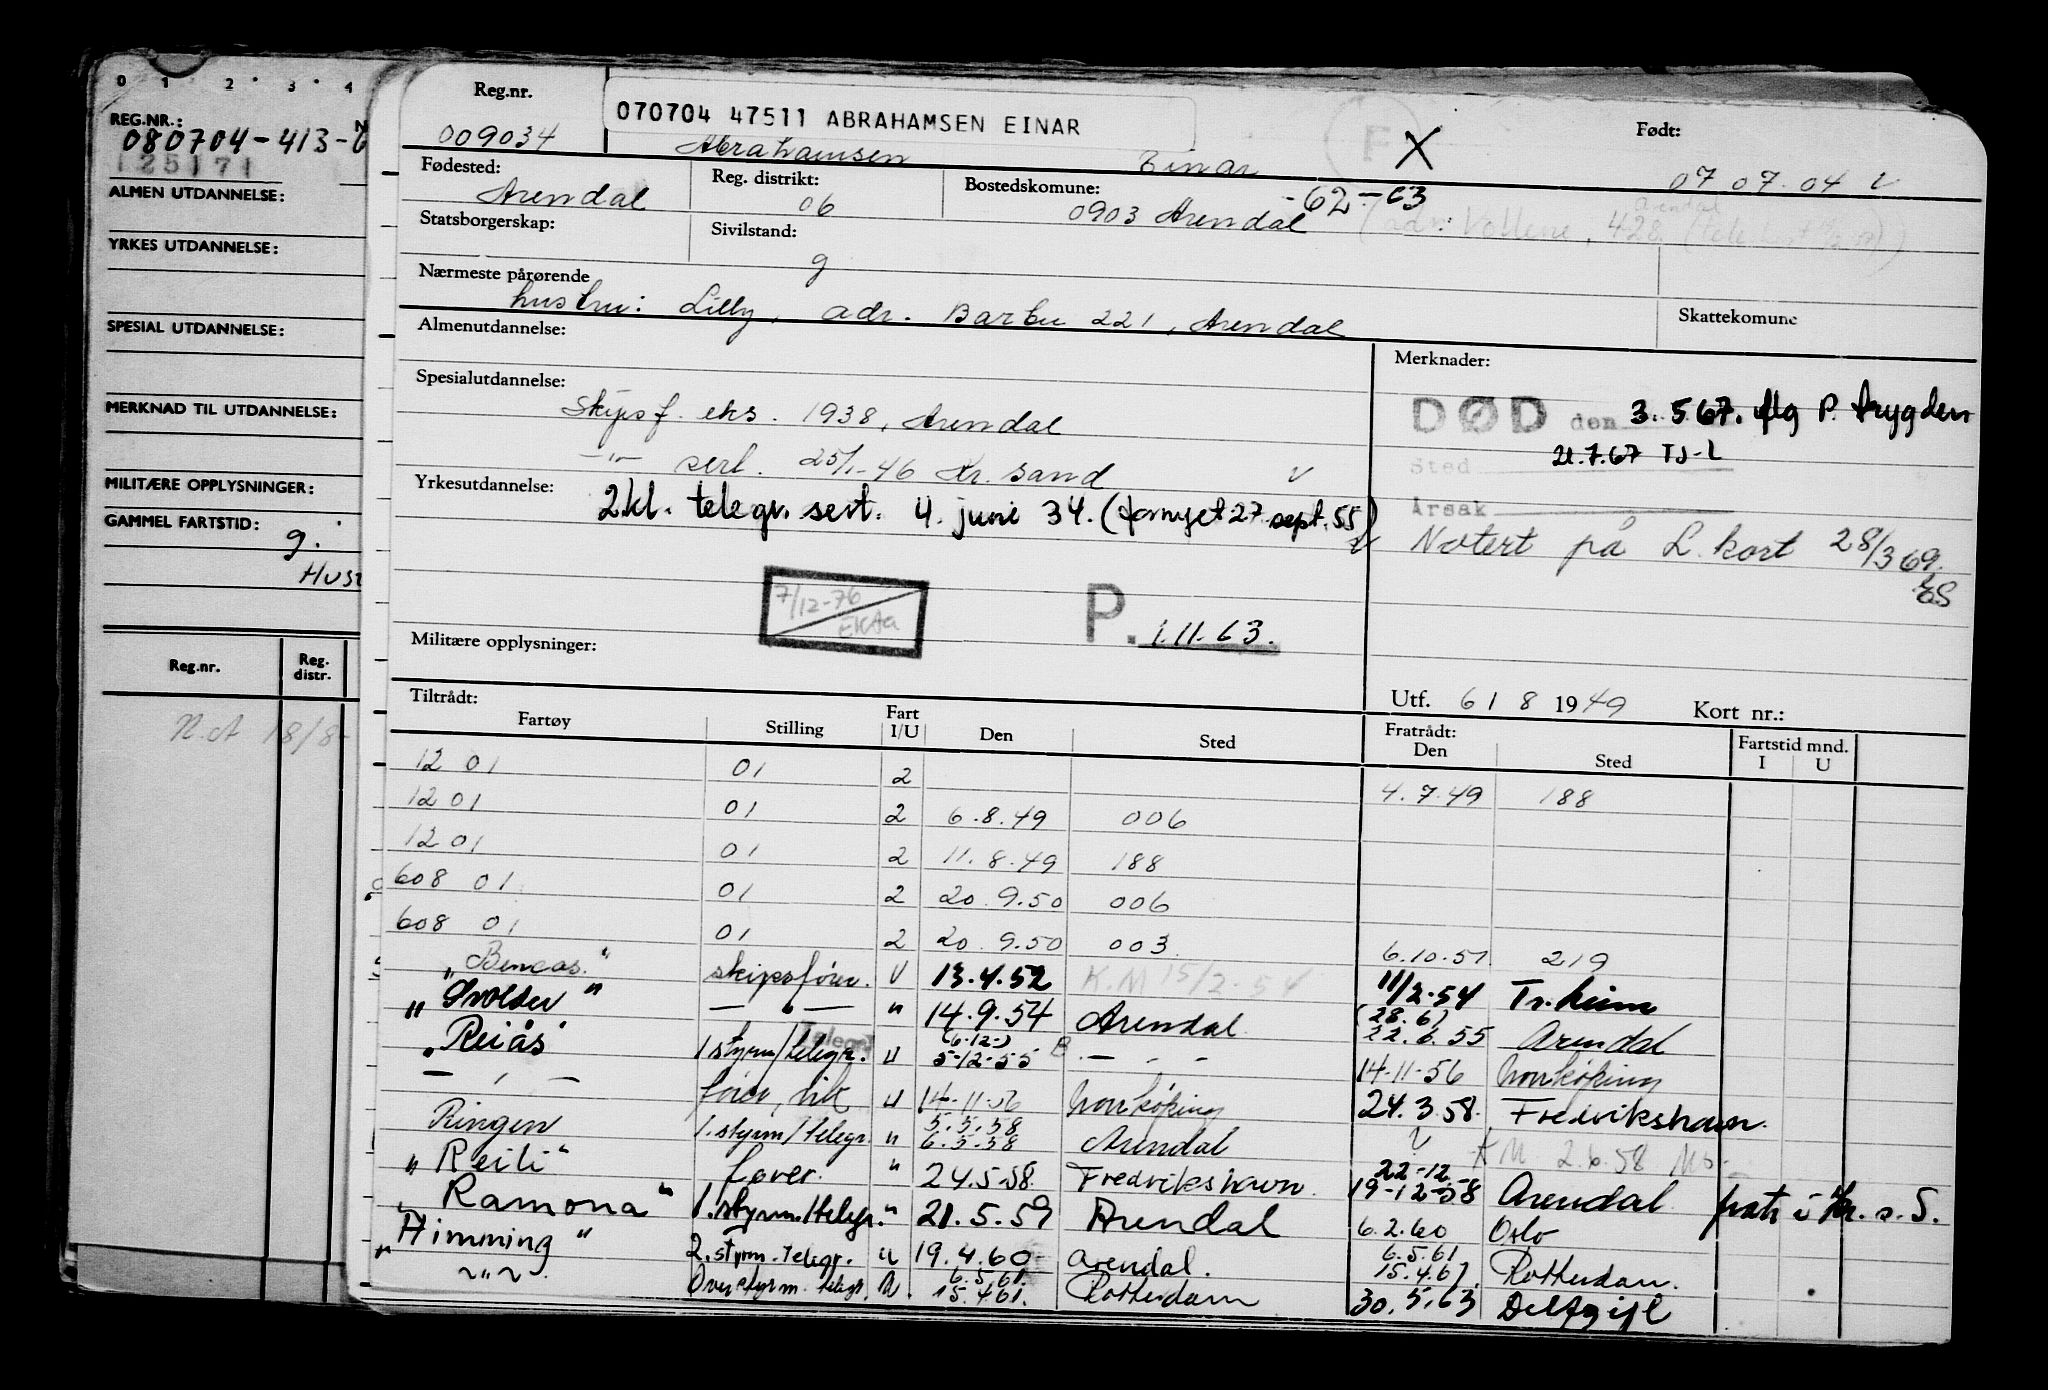 0 1 2 3 4
REG.NR.:
080704-413-
125171
ALMEN UTDANNELSE:
YRKES UTDANNELSE:
SPESIAL UTDANNELSE:
MERKNAD TIL UTDANNELSE:
MILITÆRE OPPLYSNINGER:
GAMMEL FARTSTID:
g.
Hust
Reg.nr. Reg. distr.
N.A 18/8-
Reg.nr. 009034
070704 47511 ABRAHAMSEN EINAR
Abrahamsen Einar
F X
Født: 07 07.04 v
Fødested: Arendal
Reg. distrikt: 06
Bostedskommune: 0903 Arendal -62-63
Arendal
(adr: Vollene, 428
Statsborgerskap:
Sivilstand: g
Nærmeste pårørende
hustru: Lilly, adr. Barbu 221, Arendal
Skattekomune
Almenutdannelse:
Merknader:
Spesialutdannelse:
Skipsf. eks. 1938, Arendal
-"- serl. 25/1-46 Kr.sand v
DØD den 3.567. flg P. trygden
Sted 21.7.67 TJ-L
Årsak
Yrkesutdannelse: 2kl. telegr. sert. 4. juni 34. (fornyet 27 sept. 55)
Notert på L. kort 28/3 69.
ES
7/12-76
EKAa
P. 1.11.63.
Militære opplysninger:
Utf. 61 8 1949 Kort nr.:
Tiltrådt:
Fartøy Stilling Fart I/U Den Sted Fratrådt: Den Sted Fartstid mnd. I U
12 01 01 2 4.7.49 188
12 01 01 2 6.8.49 006
12 01 01 2 11.8.49 188
608 01 01 2 20.9.50 006
608 01 01 2 20.9.50 003 6.10.51 219
"Bencas." skipsfører. U 13.4.52 K.M 15/2-54 11/2-54 Tr.heim
"Svolder" — " — " 14.9.54 Arendal (28.6) 22.6.55 Arendal
"Reiås" 1 styrm/telegr. U (6-12-) 5-12-55 — " — 14-11-56 Norrköping
— " — fører, tilt U 14-11-56 Norrköping 24.3.58. Fredrikshavn.
Ringen 1.styrm/telegr. " 5.5.58 6.5.58 Arendal v KM 2.6.58
"Reili" fører. " 24.5.58. Fredrikshavn. 22-12 19-12-58 Arendal fratr i Kr. s. S.
"Ramona" 1.styrm./telegr. " 21.5.59 Arendal 6.2.60 Oslo
"Himming" 2.styrm.telegr. U 19.4.60 Arendal. 6.5.61 15.4.61. Rotterdam.
~"~. Overstyrm. telegr. U. 6.5.61. 15.4.61. Rotterdam 30.5.63 Delfzijl